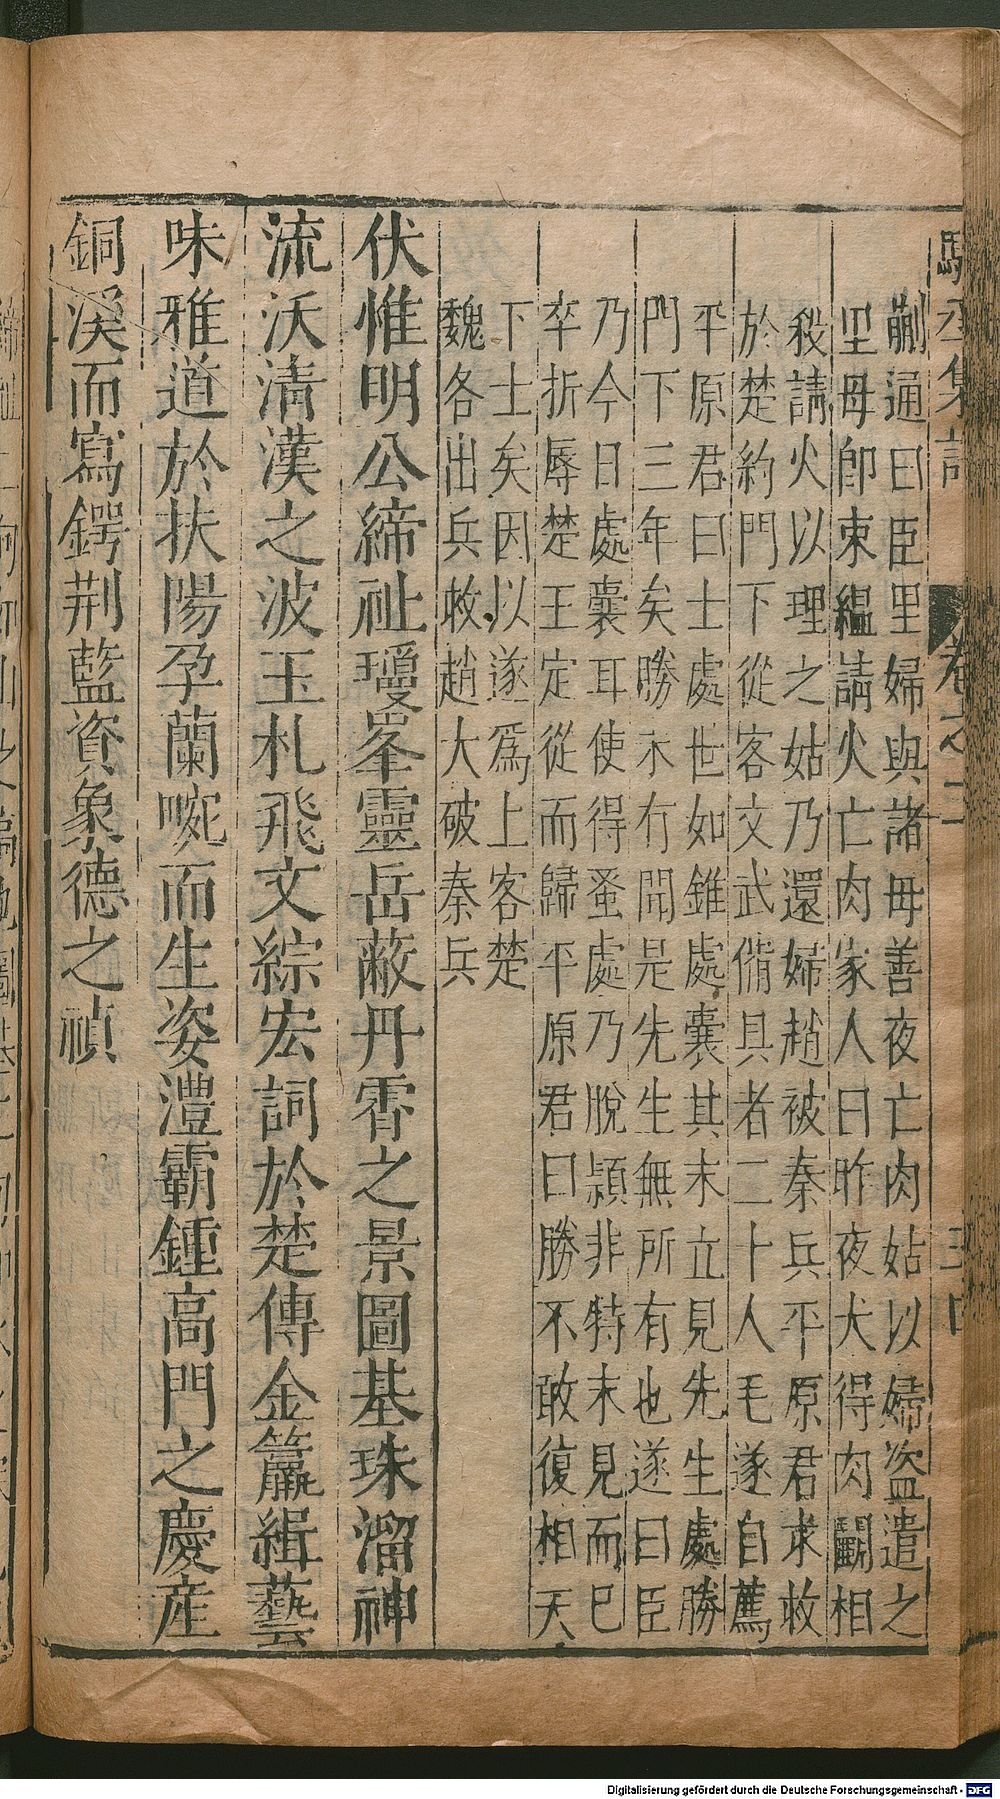 蒯通曰臣里婦與諸母善夜亡肉姑以婦盜遣之
里母卽束縕請火亡肉家人曰昨夜犬得肉鬭相
殺請火以理之姑乃還婦趙被秦兵平原君求救
於楚約門下從客文武偹具者二十人毛遂自薦
平原君曰士處世如錐處囊其末立見先生處勝
門下三年矣勝未有聞是先生無所有也遂曰臣
乃今日處囊耳使得蚤處乃脫穎非特末見而已
卒折辱楚王定從而歸平原君曰勝不敢復相天
下士矣因以遂爲上客楚
魏各出兵救趙大破秦兵
伏惟明公締祉瓊峯靈岳蔽丹霄之景圖基珠溜神
流沃淸漢之波玉札飛文綜宏詞於楚傳金籯緝藝
味雅道於扶陽孕蘭畹而生姿澧霸鍾高門之慶産
銅溪而寫鍔荆藍資象德之禎
卷之二
Digitalisierung gefördert durch die Deutsche Forschungsgemeinschaft - DFG